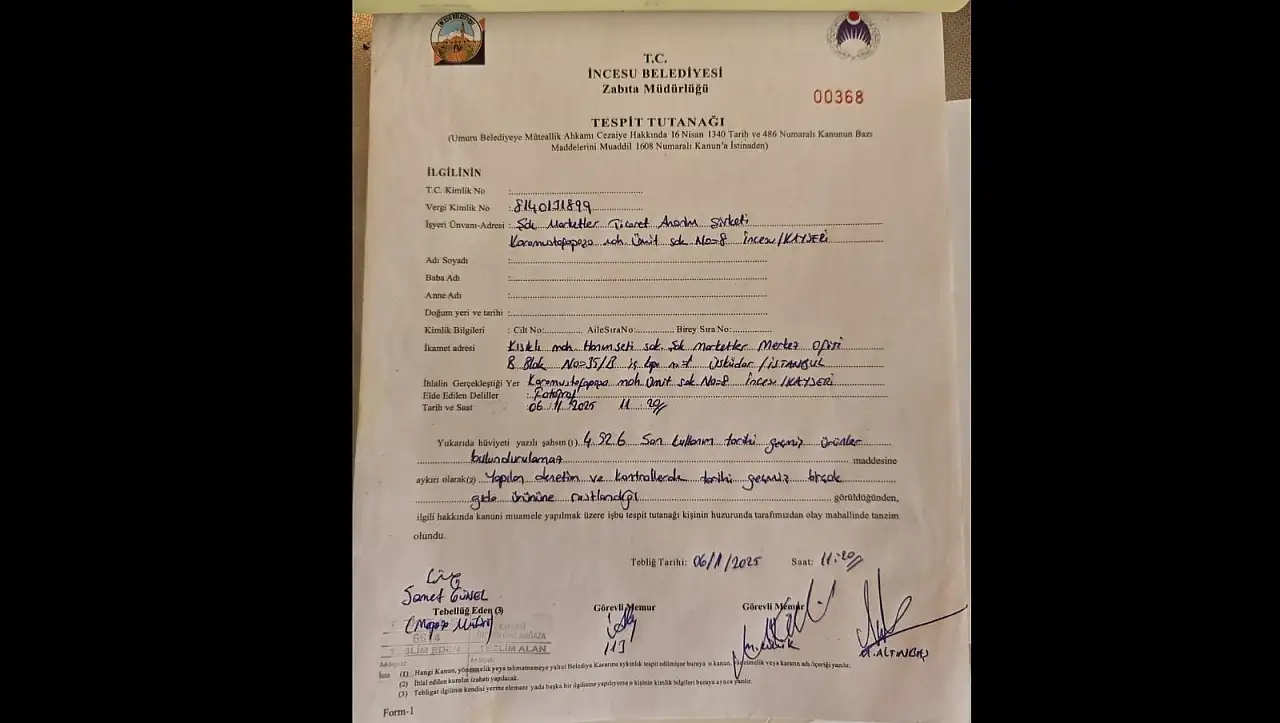 İNCESU BELEDİYESİ
T.C.
İNCESU BELEDİYESİ
Zabıta Müdürlüğü
00368
TESPİT TUTANAĞI
(Umuru Belediyeye Müteallik Ahkamı Cezaiye Hakkında 16 Nisan 1340 Tarih ve 486 Numaralı Kanunun Bazı
Maddelerini Muaddil 1608 Numaralı Kanun'a İstinaden)
İLGİLİNİN
T.C. Kimlik No :
Vergi Kimlik No : 8140131899
İşyeri Ünvanı-Adresi : Şok Marketler Ticaret Anonim Şirketi
Karamustafapaşa mah. Ümit sok. No=8 İncesu/KAYSERİ
Adı Soyadı :
Baba Adı :
Anne Adı :
Doğum yeri ve tarihi :
Kimlik Bilgileri : Cilt No: AileSıraNo: Birey Sıra No:
İkamet adresi Kısıklı mah. Hanımseti sok. Şok marketler Merkez Ofisi
B Blok No=35/B iş kapı n=1 Üsküdar/İSTANBUL
İhlalin Gerçekleştiği Yer Karamustafapaşa mah. Ümit sok. No=8 İncesu/KAYSERİ
Elde Edilen Deliller : Fotoğraf
Tarih ve Saat : 06.11.2025 11.20
Yukarıda hüviyeti yazılı şahsın(1) 4.52.6 Son kullanım tarihi geçmiş ürünler
bulundurulamaz maddesine
aykırı olarak(2) Yapılan denetim ve kontrollerde tarihi geçmiş birçok
gıda ürününe rastlandığı görüldüğünden,
ilgili hakkında kanuni muamele yapılmak üzere işbu tespit tutanağı kişinin huzurunda tarafımızdan olay mahallinde tanzim
olundu.
Tebliğ Tarihi: 06/11/2025 Saat: 11:20
Samet GÜNEL
Tebellüğ Eden (3) Görevli Memur Görevli Memur
(Mağaza Müdürü)
6614
TESLİM EDEN TESLİM ALAN
A. ALTINBAŞ
(1) Hangi Kanun, yönetmelik veya talimatnameye yahut Belediye Kararına aykırılık tespit edilmişse buraya o kanun, yönetmelik veya kararın adı/içeriği yazılır.
(2) İhlal edilen kuralın izahatı yapılacak.
(3) Tebligat ilgilinin kendisi yerine elemanı yada başka bir ilgilisine yapılıyorsa o kişinin kimlik bilgileri buraya ayrıca yazılır.
Form-1